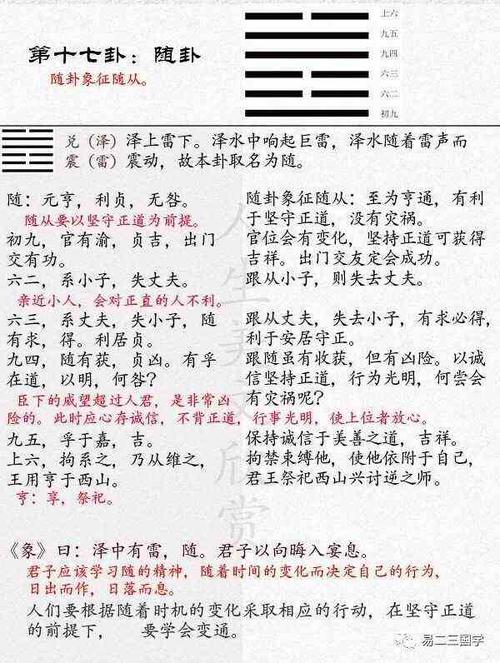 第十七卦：随卦
随卦象征随从。
上六
九五
九四
六三
六二
初九
兑（泽）泽上雷下。泽水中响起巨雷，泽水随着雷声而
震（雷）震动，故本卦取名为随。
随：元亨，利贞，无咎。
随从要以坚守正道为前提。
初九，官有渝，贞吉，出门
交有功。
六二，系小子，失丈夫。
亲近小人，会对正直的人不利。
六三，系丈夫，失小子，随
有求，得。利居贞。
九四，随有获，贞凶。有孚
在道，以明，何咎？
臣下的威望超过人君，是非常凶
险的。此时应心存诚信，不背正道，行事光明，使上位者放心。
九五，孚于嘉，吉。
上六，拘系之，乃从维之，
王用亨于西山。
亨：享，祭祀。
随卦象征随从：至为亨通，有利
于坚守正道，没有灾祸。
官位会有变化，坚持正道可获得
吉祥。出门交友定会成功。
跟从小子，则失去丈夫。
跟从丈夫，失去小子，有求必得，
利于安居守正。
跟随虽有收获，但有凶险。以诚
信坚持正道，行为光明，何尝会
有灾祸呢？
保持诚信于美善之道，吉祥。
拘禁束缚他，使他依附于自己，
君王祭祀西山兴讨逆之师。
人生美文欣赏
《象》曰：泽中有雷，随。君子以向晦入宴息。
君子应该学习随的精神，随着时间的变化而决定自己的行为，
日出而作，日落而息。
人们要根据随着时机的变化采取相应的行动，在坚守正道
的前提下， 要学会变通。
易二三国学